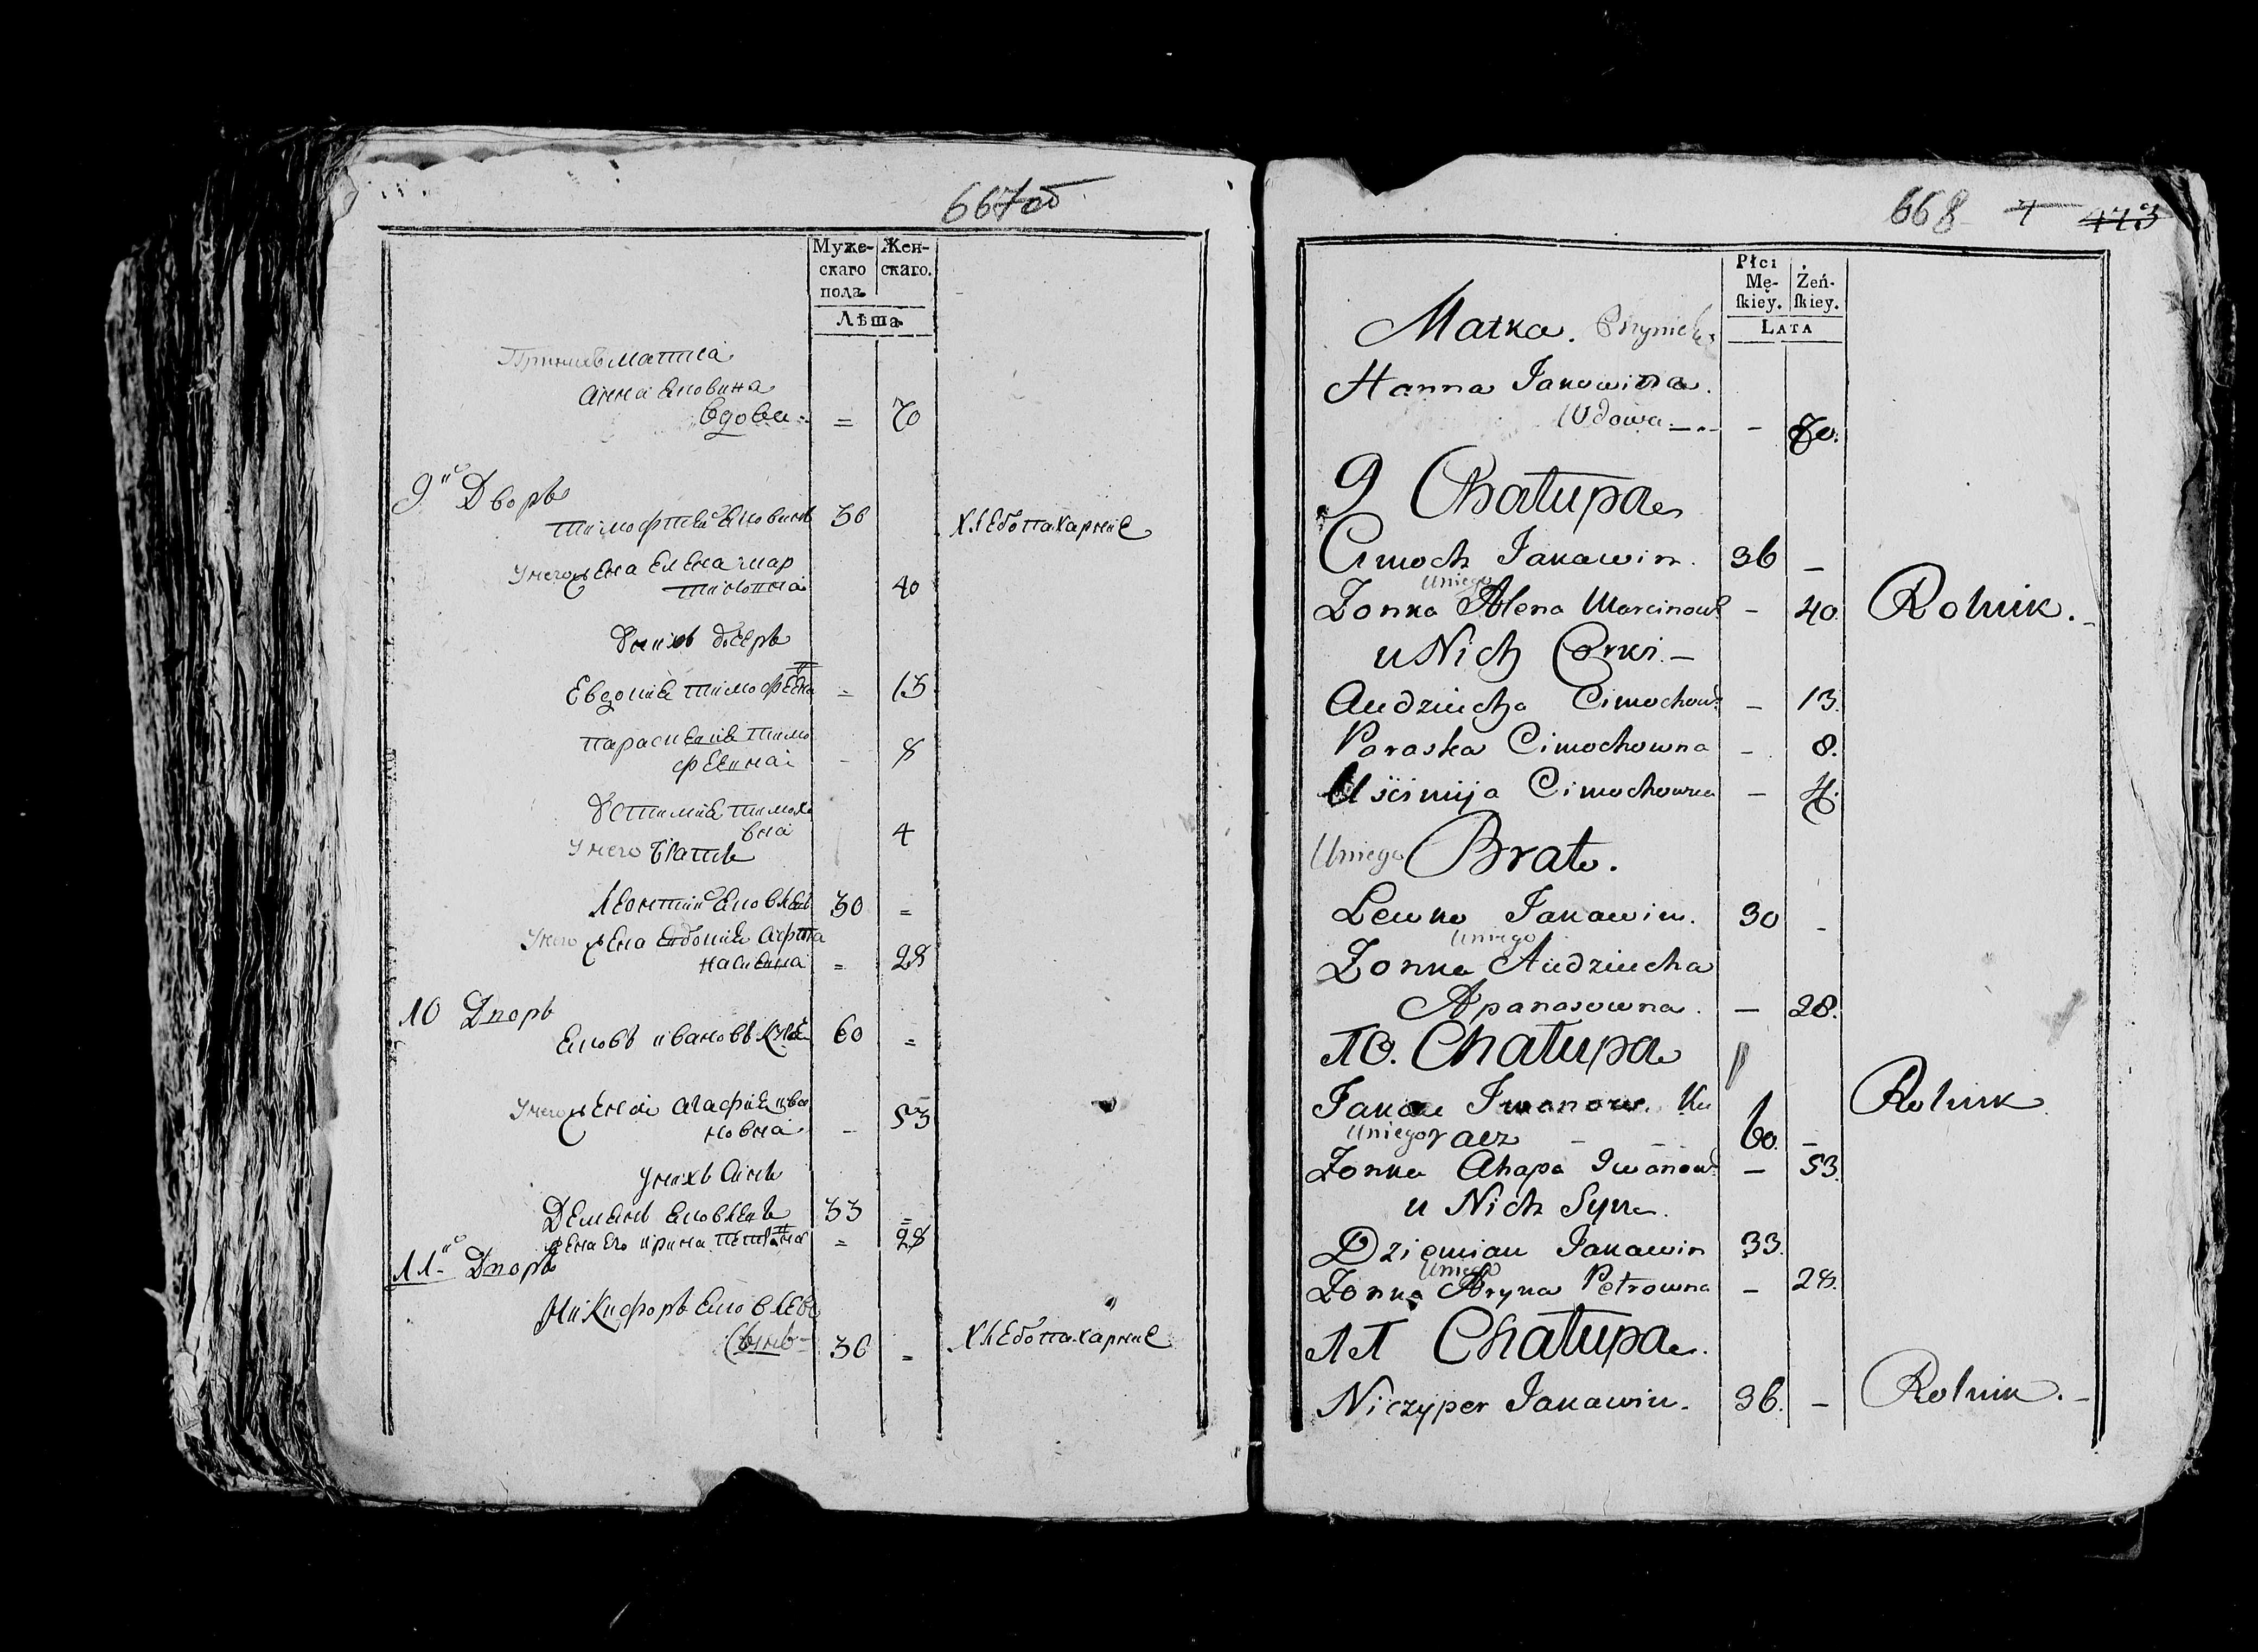 667об
Муже-
скаго
пола
Жен-
скаго.
Лѣта
при нихъ матка
анна Яковина
вдова
=
70
9й Дворъ
тимофей Яковинъ
36
хлебопахарние
У него жена Елена мар
тиновна
40
У нихъ дочерѣ
Евдокия тимофеевна
=
13
параскевия тимо
феевна
-
8
Устимия тимохо
вна
4
У него братъ
Леонтий Яковлевъ
30
=
У него жена Евдокия афта
насиевна
=
28
10 Дворъ
Яковъ ивановъ
60
=
У него жена агафия ива
новна
-
53
у нихъ синъ
Демянъ Яковлевъ
33
=
жена его ирина петровна
=
28
11й Дворъ
Никифоръ Яковлевъ
сынъ
36
=
хлебопахарние
668 7 473
Płci
Mę-
skiey.
Żeń-
skiey.
LATA
Matka. przy nich
Hanna Jakowina.
Wdowa
-
70.
9 Chałupa
Cimoch Jakawin. 36 -
u niego
Żonka Alena Marcinow - 40. Rolnik.
u Nich Corki. -
Audziucha Cimochow - 13.
Paraska Cimochowna - 8.
Uścimija Cimochowna - 4.
u niego Brat.
Lewko Jakawin. 30 -
u niego
Żonka Audziucha
Apanasowna. - 28.
10. Chałupa
Jakow Iwanow. Ku Rolnik
u niego racz 60. -
Żonka Ahapa Iwanow - 53.
u Nich Syn.
Dziemian Jakawin 33.
u niego
Żonka Aryna Petrowna - 28.
11 Chałupa.
Niczyper Jakawin. 36. - Rolnik. -